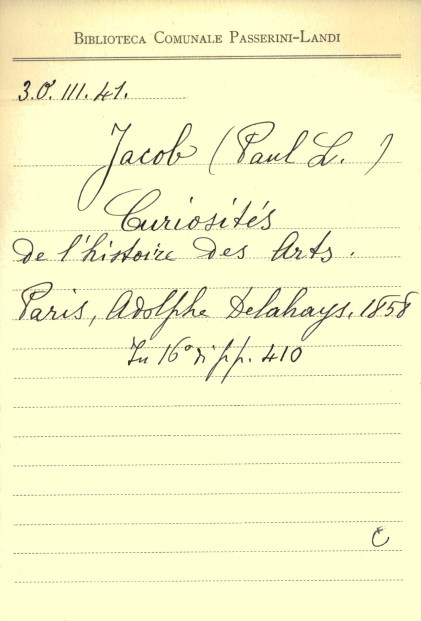 BIBLIOTECA COMUNALE PASSERINI-LANDI
3.O. III. 41.
Jacob (Paul L.)
Curiosités
de l'histoire des Arts.
Paris, Adolphe Delahays, 1858
In 16° di pp. 410
C